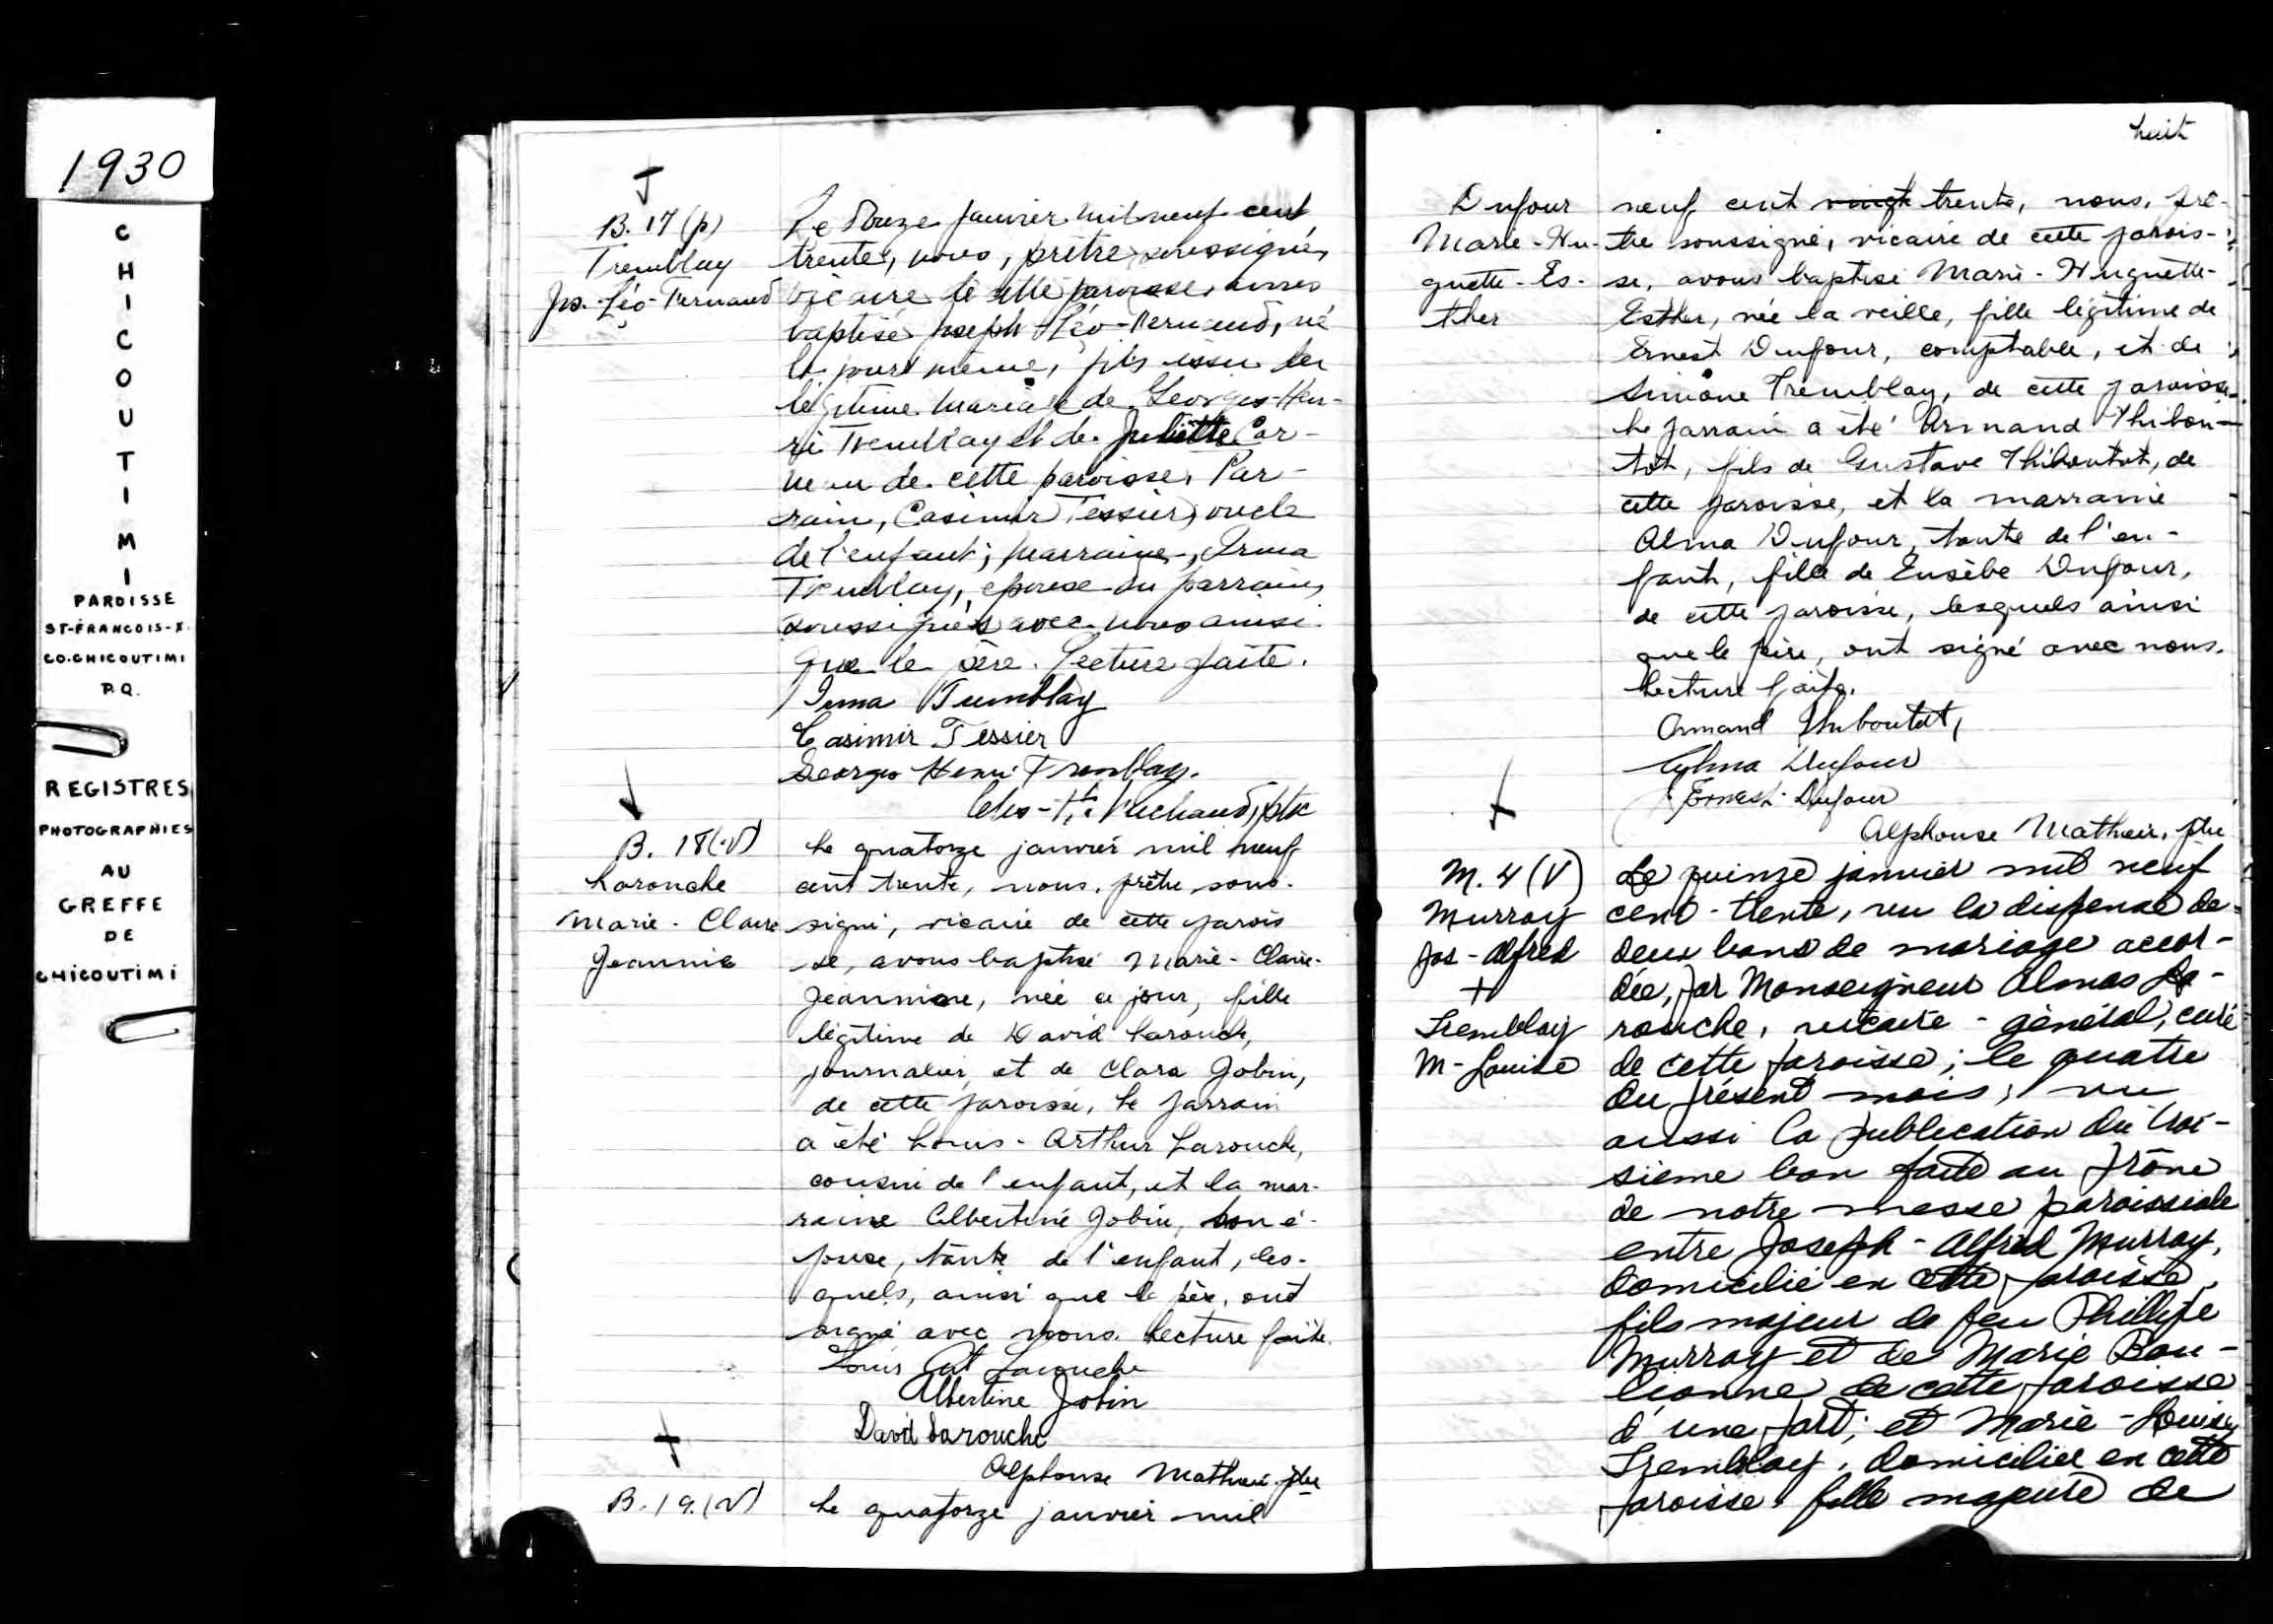 1930
C
H
I
C
O
U
T
I
M
I
PAROISSE
ST-FRANCOIS-X.
CO.CHICOUTIMI
P.Q.
REGISTRES
PHOTOGRAPHIES
AU
GREFFE
DE
CHICOUTIMI
B. 17 (p)
Tremblay
Jos.-Léo-Fernand
Le douze janvier mil neuf cent
trente, nous, prêtre soussigné,
vicaire de cette paroisse, avons
baptisé Joseph-Léo-Fernand, né
le jour même, fils issu du
légitime mariage de Georges-Hen-
ri Tremblay et de Juliette Car-
neau de cette paroisse. Par-
rain, Casimir Tessier, oncle
de l'enfant; marraine, Irma
Tremblay, épouse du parrain,
soussignés avec nous ainsi
que le père. Lecture faite.
Irma Tremblay
Casimir Tessier
Georges Henri Tremblay.
ptre
B. 18 (v)
Larouche
Marie-Claire
Jeannine
Le quatorze janvier mil neuf
cent trente, nous, prêtre sous-
signé, vicaire de cette parois
se, avons baptisé Marie-Claire-
Jeannine, née ce jour, fille
légitime de David Larouche,
journalier, et de Clara Jobin,
de cette paroisse, le parrain
a été Louis-Arthur Larouche,
cousin de l'enfant, et la mar-
raine Albertine Jobin, son é-
pouse, tante de l'enfant, les-
quels, ainsi que le père, ont
signé avec nous. Lecture faite.
Louis Art Larouche
Albertine Jobin
David Larouche
Alphonse Mathieu, ptre
B. 19. (v)
Le quatorze janvier mil
huit
Dufour
Marie-Hu-
guette-Es-
ther
neuf cent vingt trente, nous, prê-
tre soussigné, vicaire de cette parois-
se, avons baptisé Marie-Huguette-
Esther, née la veille, fille légitime de
Ernest Dufour, comptable, et de
Simone Tremblay, de cette paroisse.
Le parrain a été Armand Thibou-
tot, fils de Gustave Thiboutot, de
cette paroisse, et la marraine
Alma Dufour, tante de l'en-
fant, fille de Eusèbe Dufour,
de cette paroisse, lesquels ainsi
que le père, ont signé avec nous.
Lecture faite.
Armand Thiboutot,
Alma Dufour
Ernest Dufour
Alphonse Mathieu, ptre
M. 4 (V)
Murray
Jos-Alfred
+
Tremblay
M-Louise
Le quinze janvier mil neuf
cent-trente, vu la dispense de
deux bans de mariage accor-
dée, par Monseigneur Almas La-
rouche, vicaire-général, curé
de cette paroisse; le quatre
du présent mois; vu
aussi la publication du troi-
sième ban faite au prône
de notre messe paroissiale
entre Joseph-Alfred Murray,
domicilié en cette paroisse,
fils majeur de feu Phillipe
Murray et de Marie Bou-
lionne de cette paroisse
d'une part; et Marie-Louise
Tremblay, domiciliée en cette
paroisse, fille majeure de